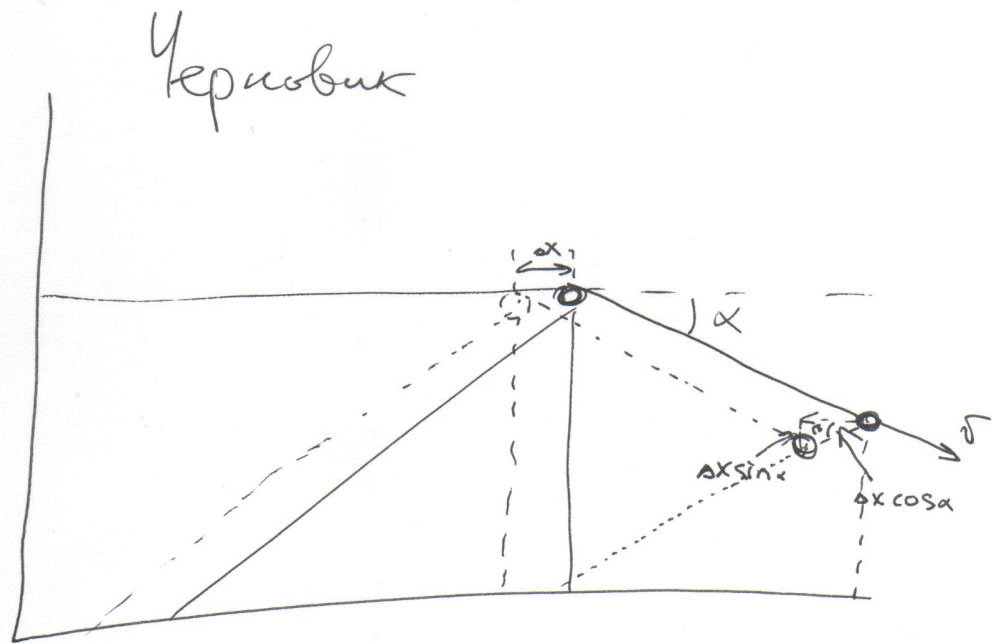 Черновик
Δx
α
v
Δx sinα
Δx cosα